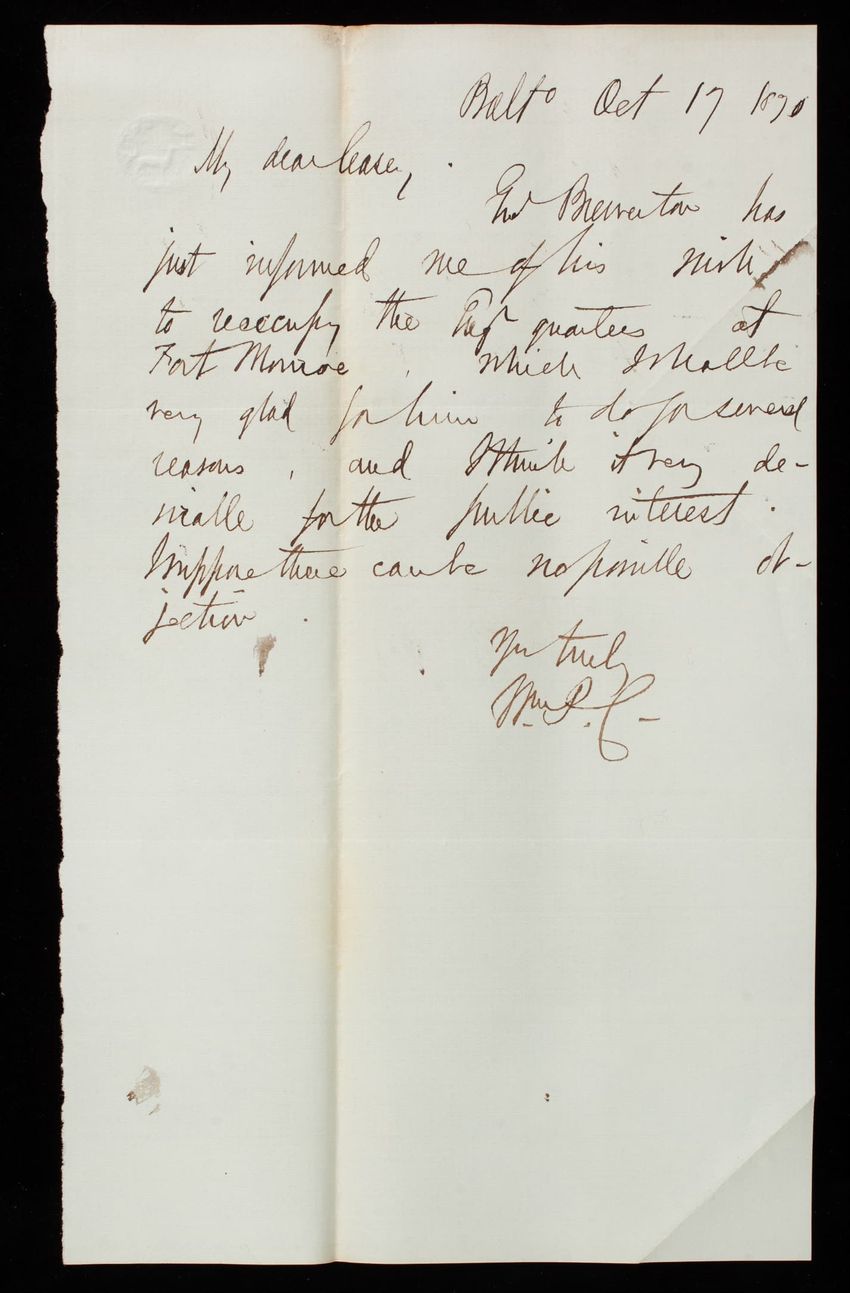 Balto Oct 17 1870
My dear Casey,
Genl Brewerton has
just informed me of his wish
to reoccupy the Engr quarters at
Fort Monroe, which I shall be
very glad for him to do for several
reasons, and I think it very de-
sirable for the public interest.
I suppose there can be no possible ob-
jection.
Yrs truly
Wm. P. C-